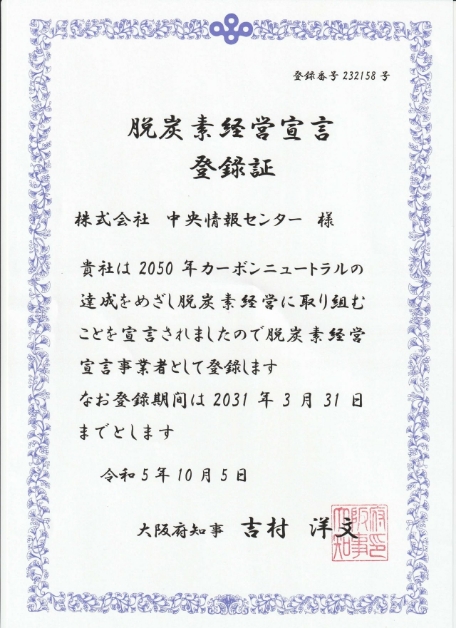 登録番号 232158 号
脱炭素経営宣言
登録証
株式会社 中央情報センター 様
貴社は 2050 年カーボンニュートラルの
達成をめざし脱炭素経営に取り組む
ことを宣言されましたので脱炭素経営
宣言事業者として登録します
なお登録期間は 2031 年 3 月 31 日
までとします
令和 5 年 10 月 5 日
大阪府知事 吉村 洋文
大阪府知事印